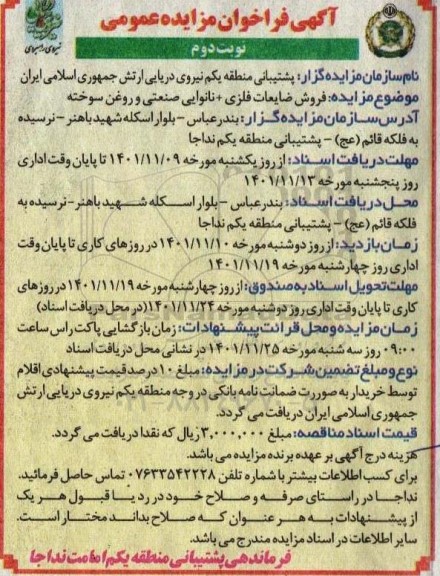 آگهی فراخوان مزایده عمومی
نوبت دوم
نام سازمان مزایده گزار: پشتیبانی منطقه یکم نیروی دریایی ارتش جمهوری اسلامی ایران
موضوع مزایده: فروش ضایعات فلزی + نانوایی صنعتی و روغن سوخته
آدرس سازمان مزایده گزار: بندرعباس - بلوار اسکله شهید باهنر - نرسیده
به فلکه قائم (عج) - پشتیبانی منطقه یکم نداجا
مهلت دریافت اسناد: از روز یکشنبه مورخه ۱۴۰۱/۱۱/۰۹ تا پایان وقت اداری
روز پنجشنبه مورخه ۱۴۰۱/۱۱/۱۳
محل دریافت اسناد: بندرعباس - بلوار اسکله شهید باهنر - نرسیده به
فلکه قائم (عج) - پشتیبانی منطقه یکم نداجا
زمان بازدید: از روز دوشنبه مورخه ۱۴۰۱/۱۱/۱۰ در روزهای کاری تا پایان وقت
اداری روز چهارشنبه مورخه ۱۴۰۱/۱۱/۱۹
مهلت تحویل اسناد به صندوق: از روز چهارشنبه مورخه ۱۴۰۱/۱۱/۱۹ در روزهای
کاری تا پایان وقت اداری روز دوشنبه مورخه ۱۴۰۱/۱۱/۲۴ (در محل دریافت اسناد)
زمان مزایده و محل قرائت پیشنهادات: زمان بازگشایی پاکت راس ساعت
۰۹:۰۰ روز سه شنبه مورخه ۱۴۰۱/۱۱/۲۵ در نشانی محل دریافت اسناد
نوع و مبلغ تضمین شرکت در مزایده: مبلغ ۱۰ درصد قیمت پیشنهادی اقلام
توسط خریدار به صورت ضمانت نامه بانکی در وجه منطقه یکم نیروی دریایی ارتش
جمهوری اسلامی ایران دریافت می گردد.
قیمت اسناد مناقصه: مبلغ ۳,۰۰۰,۰۰۰ ریال که نقدا دریافت می گردد.
هزینه درج آگهی بر عهده برنده مزایده می باشد.
برای کسب اطلاعات بیشتر با شماره تلفن ۰۷۶۳۳۵۴۲۲۲۸ تماس حاصل فرمائید.
نداجا در راستای صرفه و صلاح خود در رد یا قبول هر یک
از پیشنهادات به هر عنوان که صلاح بداند مختار است.
سایر اطلاعات در اسناد مزایده مندرج می باشد.
فرماندهی پشتیبانی منطقه یکم امامت نداجا